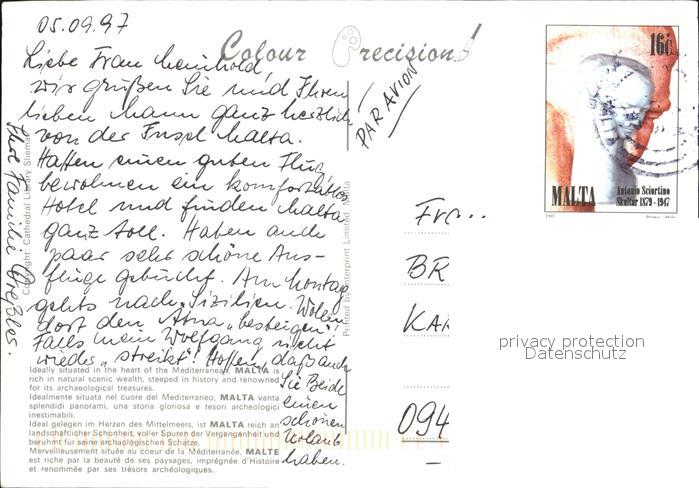 05.09.97
Colour Precision
Liebe Frau Meinhold,
wir grüßen Sie und Ihren
lieben Mann ganz herzlich
von der Insel Malta.
Hatten einen guten Flug,
bewohnen ein komfortables
Hotel und finden Malta
ganz toll. Haben auch
paar sehr schöne Aus-
flüge gebucht. Am Montag
gehts nach Sizilien. Wollen
dort den Ätna „besteigen"!
Falls mein Wolfgang nicht
wieder „streikt"! Hoffen, daß auch
Sie Beide
einen
schönen
Urlaub
haben.
Ihre Familie
PAR AVION
Copyright: Cathedral Library Sliema
Printed by Interprint Limited, Malta
Ideally situated in the heart of the Mediterranean, MALTA is
rich in natural scenic wealth, steeped in history and renowned
for its archaeological treasures.
Idealmente situata nel cuore del Mediterraneo, MALTA vanta
splendidi panorami, una storia gloriosa e tesori archeologici
inestimabili.
Ideal gelegen im Herzen des Mittelmeers, ist MALTA reich an
landschaftlicher Schönheit, voller Spuren der Vergangenheit und
berühmt für seine archäologischen Schätze.
Merveilleusement située au coeur de la Méditerranée, MALTE
est riche par la beauté de ses paysages, imprégnée d'Histoire
et renommée par ses trésors archéologiques.
16c
MALTA
Antonio Sciortino
Skultur 1879 - 1947
1997
Fr...
BR
KA
094
privacy protection
Datenschutz